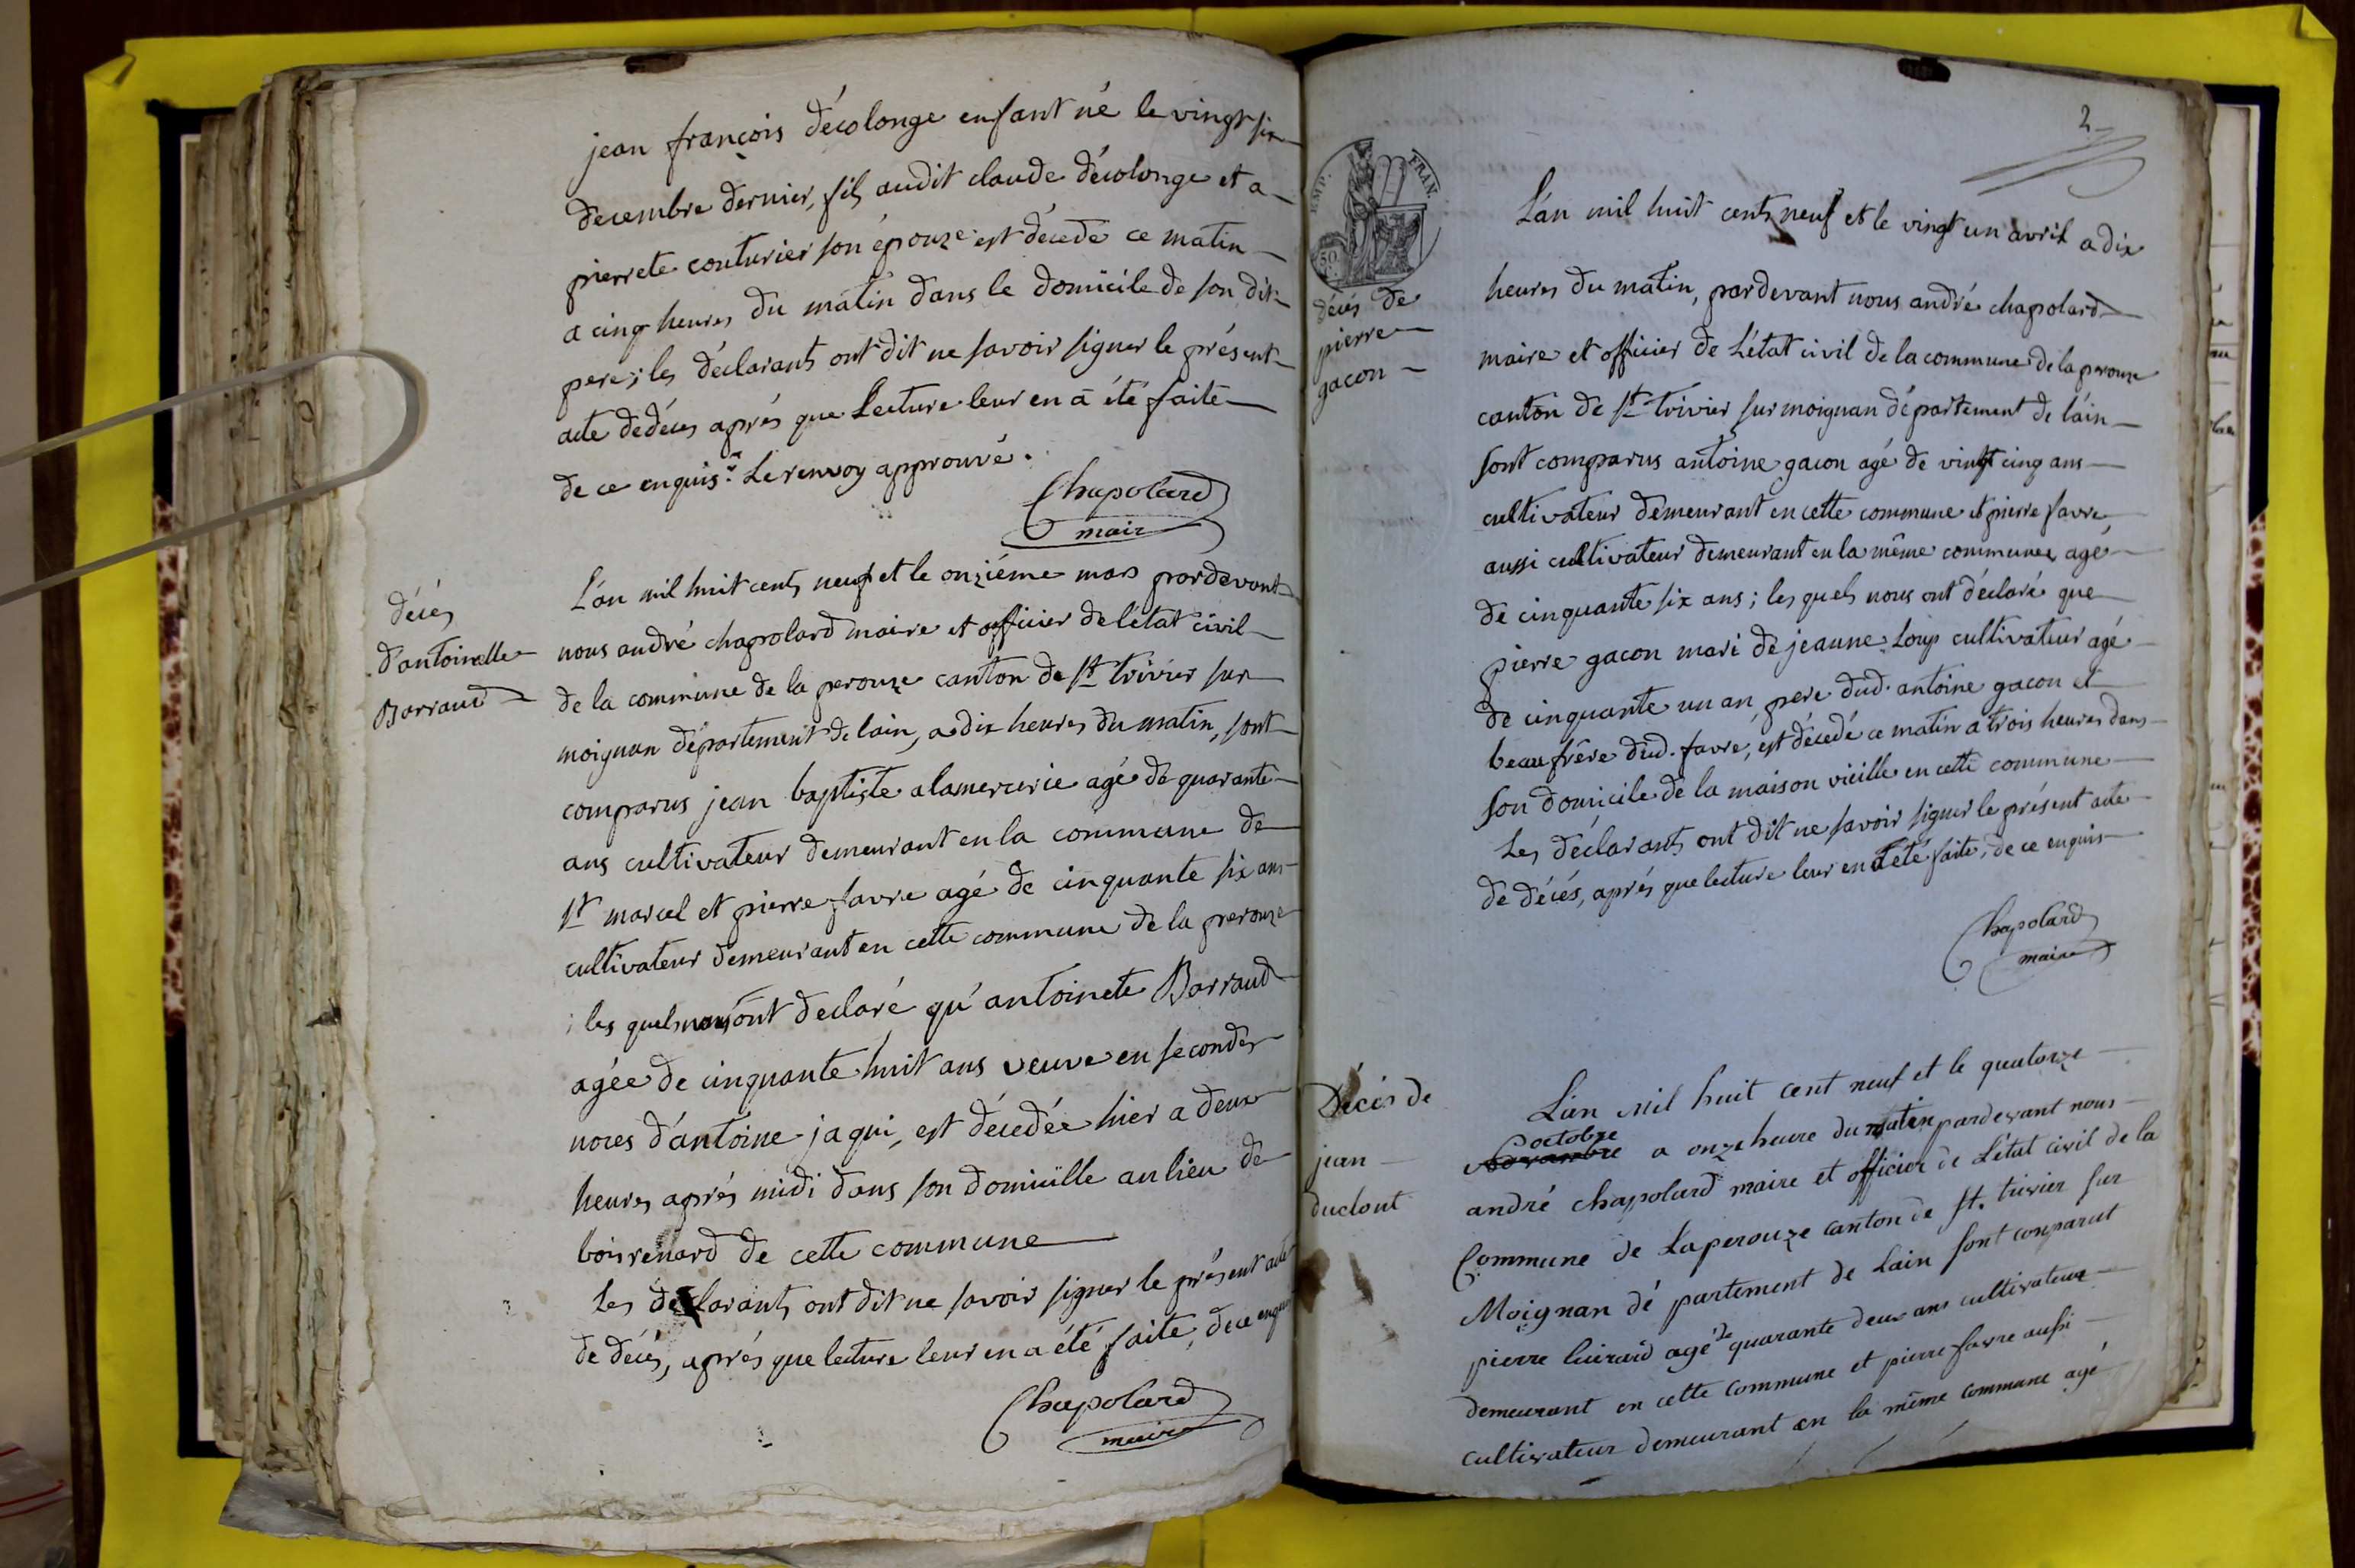 jean françois décolonge enfant né le vingt six
decembre dernier, fils audit claude décolonge et a
pierrete couturier son épouze est décedé ce matin
a cinq heures du matin dans le domicile de son dit
pere; les déclarants ont dit ne savoir signer le présent
acte de décés aprés que Lecture leur en a été faite
de ce enquis. Le renvoy approuvé.
Chapolard
mair
décés
d'antoinelle
Barraud
L'an mil huit cents neuf et le onziéme mars pardevant
nous andré chapolard maire et officier de l'état civil
de la commune de la perouze canton de st trivier sur
moignan département de lain, a dix heures du matin, sont
comparus jean baptiste alamercerie agé de quarante
ans cultivateur demeurant en la commune de
st marcel et pierre favre agé de cinquante six ans
cultivateur demeurant en cette commune de la perouze
; les quels nous ont declaré qu'antoinete Barraud
agée de cinquante huit ans veuve en secondes
noces d'antoine jaqui, est décedée hier a deux
heures aprés midi dans son domicille au lieu de
bois renard de cette commune
Les déclarants ont dit ne savoir signer le présent acte
de décés, aprés que lecture leur en a été faite, de ce enquis
Chapolard
maire
2
EMP. FRAN.
50
décés de
pierre
gacon
L'an mil huit cents neuf et le vingt un avril a dix
heures du matin, pardevant nous andré chapolard
maire et officier de L'état civil de la commune de la perouze
canton de st trivier sur moignan département de l'ain
sont comparus antoine gacon agé de vingt cinq ans
cultivateur demeurant en cette commune et pierre favre,
aussi cultivateur demeurant en la même commune, agé
de cinquante six ans; les quels nous ont déclaré que
pierre gacon mari de jeanne Loup cultivateur agé
de cinquante un an, pere dud. antoine gacon et
beaufrére dud. favre, est décedé ce matin a trois heures dans
son domicile de la maison vieille en cette commune
Les déclarants ont dit ne savoir signer le présent acte
de décés, aprés que lecture leur en a été faite, de ce enquis
Chapolard
maire
Décés de
jean
duclout
L'an mil huit cent neuf et le quatorze
octobre
Novambre a onze heure du matin pardevant nous
andré Chapolard maire et officier de L'état civil de la
Commune de Laperouze canton de st. trivier sur
Moignan dé partement de Lain sont comparut
pierre agé de quarante deux ans cultivateur
demeurant en cette commune et pierre favre aussi
cultivateur demeurant en la même commune agé